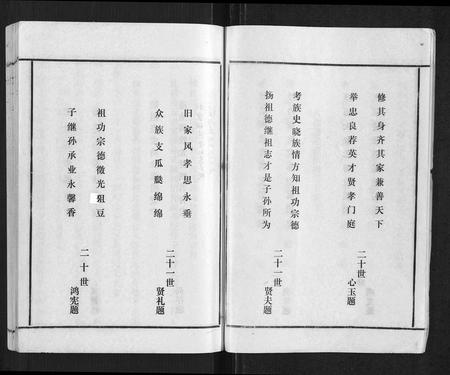 修其身齐其家兼善天下
举忠良荐英才贤孝门庭
二十世
心玉题
考族史晓族情方知祖功宗德
扬祖德继祖志才是子孙所为
二十一世
贤夫题
旧家风孝思永垂
众族支瓜瓞绵绵
二十一世
贤礼题
祖功宗德微光狙豆
子继孙承业永馨香
二十世
鸿宪题